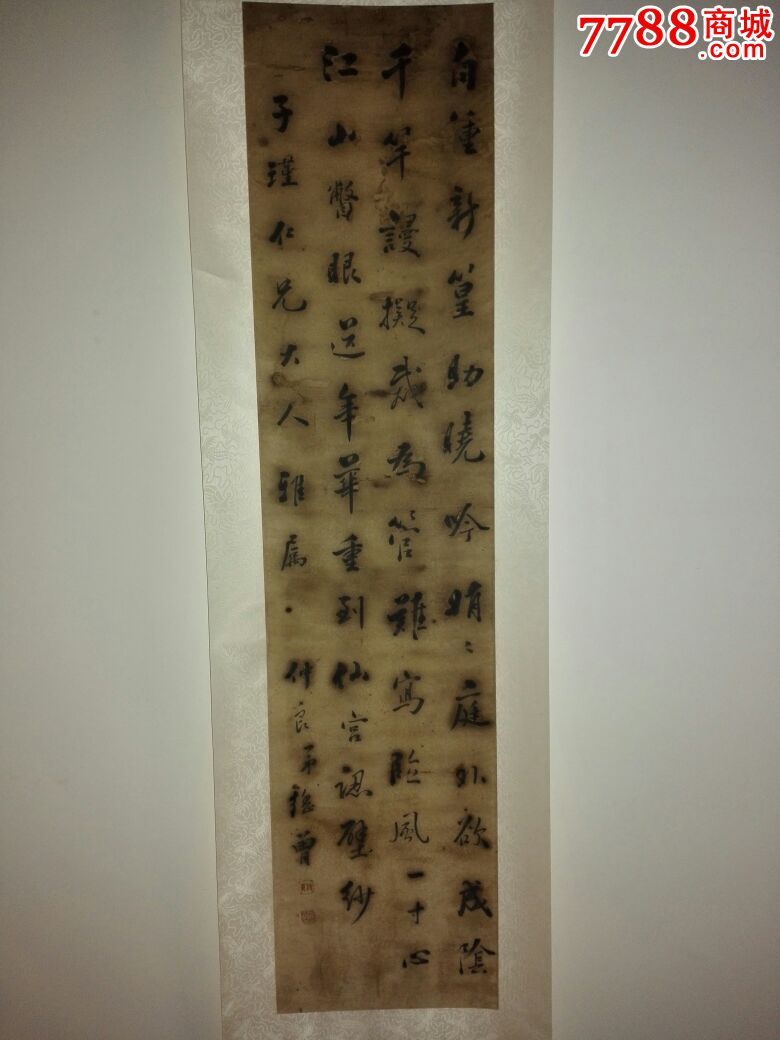 7788商城
.com
自種新篁助曉吟娟〻庭外欲成陰
千竿謾擬裁為管難寫臨風一寸心
江山瞥眼送年華重到仙宮認壁紗
子瑾仁兄大人雅屬
仲良弟 曾